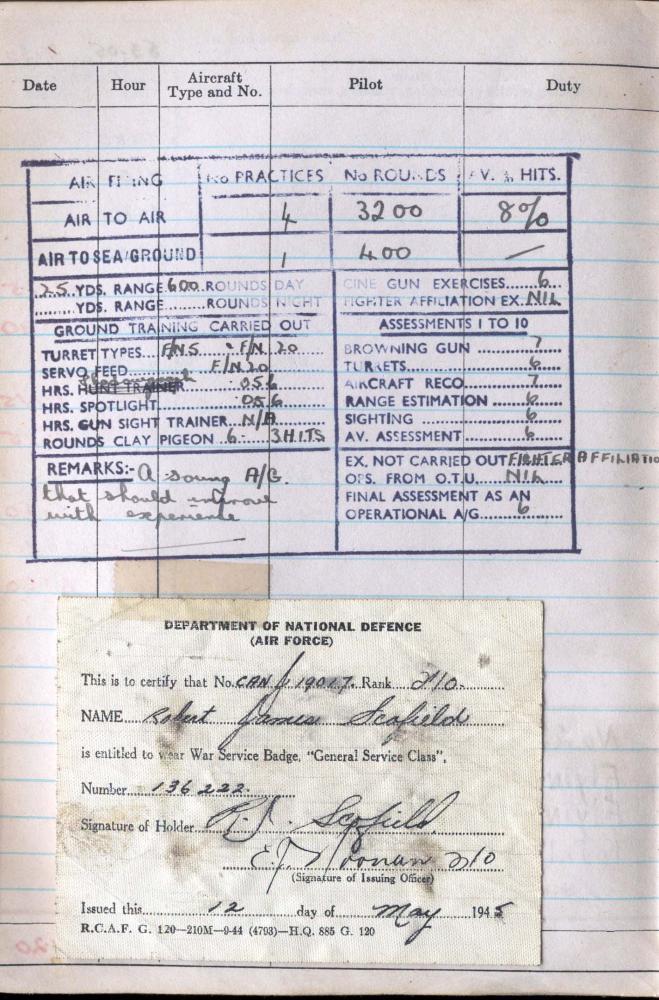 Date Hour Aircraft Type and No. Pilot Duty
AIR FIRING No PRACTICES No ROUNDS AV. % HITS.
AIR TO AIR 4 3200 8%
AIR TO SEA/GROUND 1 400 —
25 YDS. RANGE 600 ROUNDS DAY
YDS. RANGE ROUNDS NIGHT
GROUND TRAINING CARRIED OUT
TURRET TYPES F/N5 - F/N 20
SERVO FEED F/N20
HRS. HUNT TRAINER .056
HRS. SPOTLIGHT .056
HRS. GUN SIGHT TRAINER N/A
ROUNDS CLAY PIGEON 6 - 3 HITS
REMARKS:- A sound A/G.
that should improve
with experience
CINE GUN EXERCISES 6
FIGHTER AFFILIATION EX. NIL
ASSESSMENTS 1 TO 10
BROWNING GUN 7
TURRETS 6
AIRCRAFT RECO. 7
RANGE ESTIMATION 6
SIGHTING 6
AV. ASSESSMENT 6
EX. NOT CARRIED OUT FIGHTER AFFILIATIO
OPS. FROM O.T.U. NIL
FINAL ASSESSMENT AS AN
OPERATIONAL A/G 6
DEPARTMENT OF NATIONAL DEFENCE
(AIR FORCE)
This is to certify that No. CAN J 19017 Rank F/O.
NAME Robert James Scofield
is entitled to wear War Service Badge, "General Service Class",
Number 136222.
Signature of Holder R.J. Scofield
F/O
(Signature of Issuing Officer)
Issued this 12 day of May 1945
R.C.A.F. G. 120—210M—9-44 (4793)—H.Q. 885 G. 120